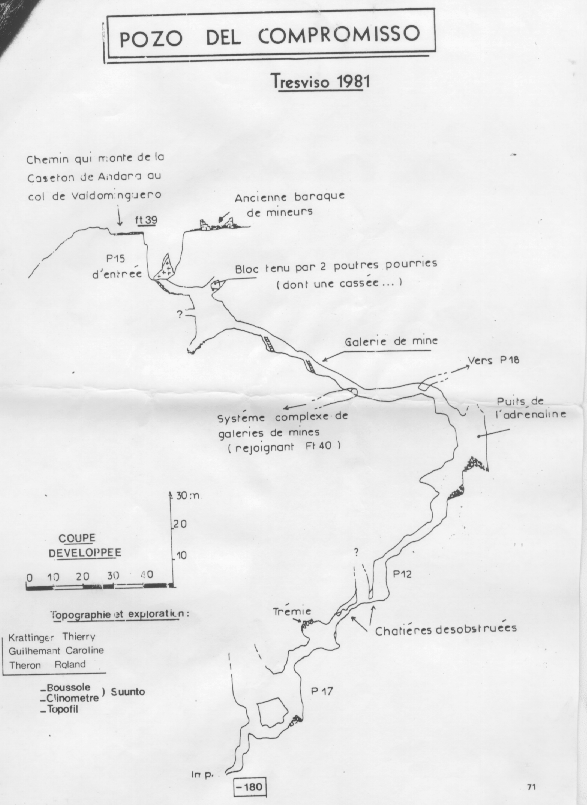 POZO DEL COMPROMISSO
Tresviso 1981
Chemin qui monte de la
Caseton de Andara au
col de Valdominguero
ft 39
Ancienne baraque
de mineurs
P15
d'entrée
Bloc tenu par 2 poutres pourries
(dont une cassée...)
?
Galerie de mine
Vers P18
Puits de
l'adrénaline
Systéme complexe de
galeries de mines
(rejoignant Ft 40)
30 m
20
10
COUPE
DEVELOPPEE
0 10 20 30 40
?
P12
Topographie et exploration :
Trémie
Chatières desobstruées
Krattinger Thierry
Guilhemant Caroline
Theron Roland
_Boussole
_Clinometre ) Suunto
_Topofil
P17
Imp.
-180
71